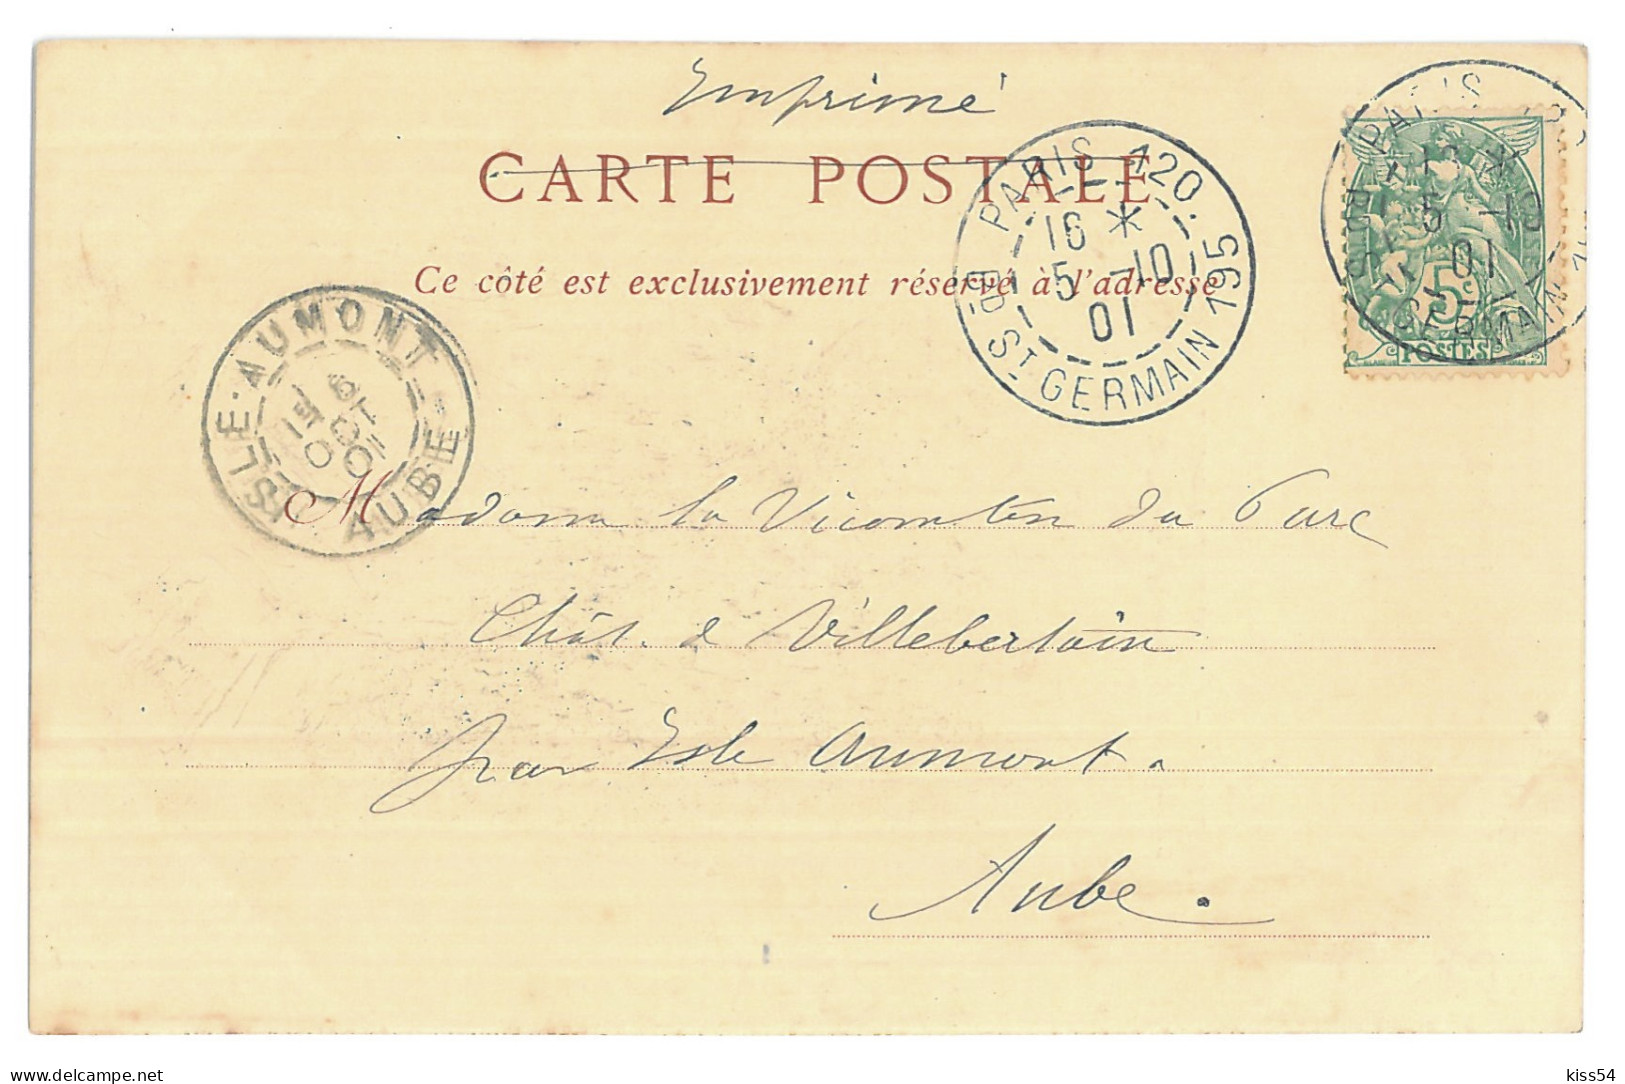 Imprimé
CARTE POSTALE
Ce côté est exclusivement réservé à l'adresse
PARIS 120
16 *
5 -10
01
BD ST GERMAIN 195
PARIS
5 -10
01
GERMAIN
5c
POSTES
ISLE-AUMONT
6
OCT
01
AUBE
Madame la Vicomtesse du Parc
Chât. de Villebertain
par Isle Aumont.
Aube.
delcampe.net
kiss54